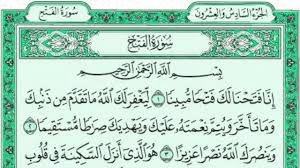 سُورَةُ الفَتْحِ
الجُزْءُ السَّادِسُ وَالعِشْرُونَ
سُورَةُ الفَتْحِ
بِسْمِ اللَّهِ الرَّحْمَٰنِ الرَّحِيمِ
إِنَّا فَتَحْنَا لَكَ فَتْحًا مُّبِينًا ١ لِّيَغْفِرَ لَكَ اللَّهُ مَا تَقَدَّمَ مِن ذَنبِكَ
وَمَا تَأَخَّرَ وَيُتِمَّ نِعْمَتَهُ عَلَيْكَ وَيَهْدِيَكَ صِرَاطًا مُّسْتَقِيمًا ٢
وَيَنصُرَكَ اللَّهُ نَصْرًا عَزِيزًا ٣ هُوَ الَّذِي أَنزَلَ السَّكِينَةَ فِي قُلُوبِ